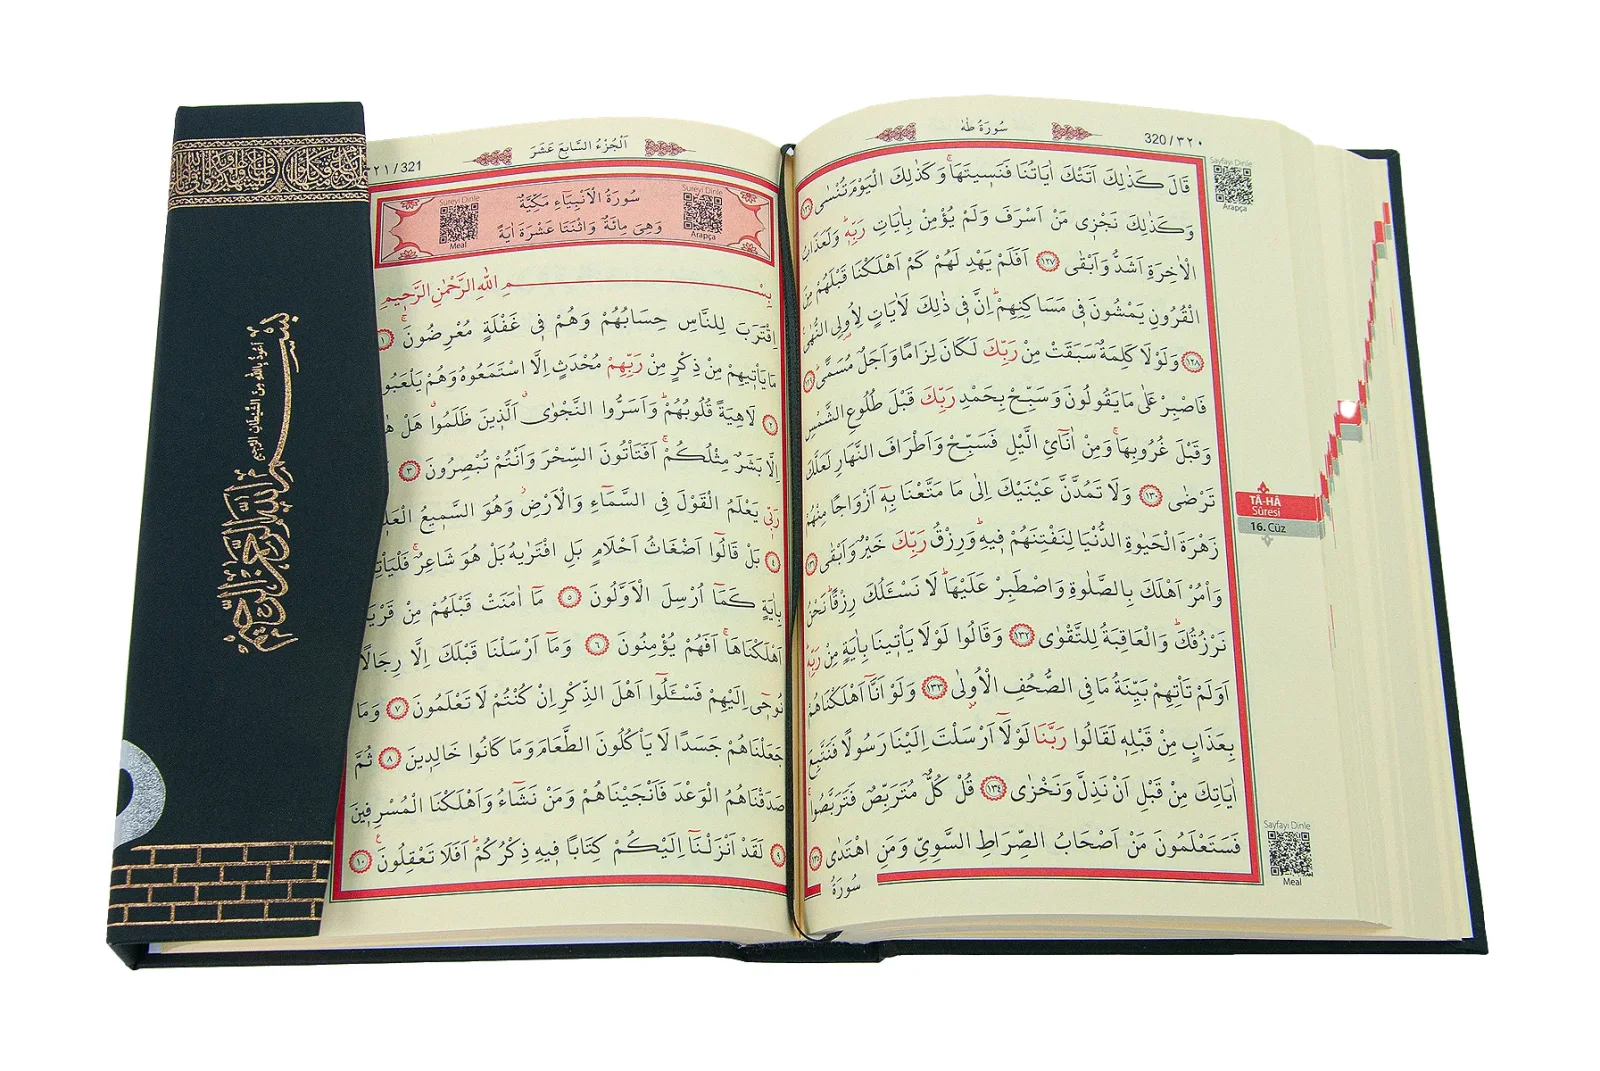 سُورَةُ طٰهٰ
320 / ٣٢٠
Sayfayı Dinle
Arapça
قَالَ كَذٰلِكَ اَتَتْكَ اٰيَاتُنَا فَنَسٖيتَهَاۚ وَكَذٰلِكَ الْيَوْمَ تُنْسٰى ﴿١٢٦﴾
وَكَذٰلِكَ نَجْزٖى مَنْ اَسْرَفَ وَلَمْ يُؤْمِنْ بِاٰيَاتِ رَبِّهٖؕ وَلَعَذَابُ
الْاٰخِرَةِ اَشَدُّ وَاَبْقٰى ﴿١٢٧﴾ اَفَلَمْ يَهْدِ لَهُمْ كَمْ اَهْلَكْنَا قَبْلَهُمْ مِنَ
الْقُرُونِ يَمْشُونَ فٖى مَسَاكِنِهِمْؕ اِنَّ فٖى ذٰلِكَ لَاٰيَاتٍ لِاُولِى النُّهٰى
﴿١٢٨﴾ وَلَوْلَا كَلِمَةٌ سَبَقَتْ مِنْ رَبِّكَ لَكَانَ لِزَامًا وَاَجَلٌ مُسَمًّىؕ ﴿١٢٩﴾
فَاصْبِرْ عَلٰى مَا يَقُولُونَ وَسَبِّحْ بِحَمْدِ رَبِّكَ قَبْلَ طُلُوعِ الشَّمْسِ
وَقَبْلَ غُرُوبِهَاۚ وَمِنْ اٰنَآئِ الَّيْلِ فَسَبِّحْ وَاَطْرَافَ النَّهَارِ لَعَلَّكَ
تَرْضٰى ﴿١٣٠﴾ وَلَا تَمُدَّنَّ عَيْنَيْكَ اِلٰى مَا مَتَّعْنَا بِهٖٓ اَزْوَاجًا مِنْهُمْ
زَهْرَةَ الْحَيٰوةِ الدُّنْيَا لِنَفْتِنَهُمْ فٖيهِؕ وَرِزْقُ رَبِّكَ خَيْرٌ وَاَبْقٰى ﴿١٣١﴾
وَاْمُرْ اَهْلَكَ بِالصَّلٰوةِ وَاصْطَبِرْ عَلَيْهَاؕ لَا نَسْـَٔلُكَ رِزْقًاؕ نَحْنُ
نَرْزُقُكَؕ وَالْعَاقِبَةُ لِلتَّقْوٰى ﴿١٣٢﴾ وَقَالُوا لَوْلَا يَاْتٖينَا بِاٰيَةٍ مِنْ رَبِّهٖؕ
اَوَلَمْ تَاْتِهِمْ بَيِّنَةُ مَا فِى الصُّحُفِ الْاُولٰى ﴿١٣٣﴾ وَلَوْ اَنَّٓا اَهْلَكْنَاهُمْ
بِعَذَابٍ مِنْ قَبْلِهٖ لَقَالُوا رَبَّنَا لَوْلَٓا اَرْسَلْتَ اِلَيْنَا رَسُولًا فَنَتَّبِعَ
اٰيَاتِكَ مِنْ قَبْلِ اَنْ نَذِلَّ وَنَخْزٰى ﴿١٣٤﴾ قُلْ كُلٌّ مُتَرَبِّصٌ فَتَرَبَّصُواۚ
فَسَتَعْلَمُونَ مَنْ اَصْحَابُ الصِّرَاطِ السَّوِىِّ وَمَنِ اهْتَدٰى ﴿١٣٥﴾
سُورَةُ
TÂ-HÂ
Sûresi
16. Cüz
Sayfayı Dinle
Meal
اَلْجُزْءُ السَّابِعَ عَشَرَ
٣٢١ / 321
سُورَةُ الْاَنْبِيَٓاءِ مَكِّيَّةٌ
وَهِىَ مِائَةٌ وَاثْنَتَا عَشْرَةَ اٰيَةً
Sureyi Dinle
Arapça
Sureyi Dinle
Meal
بِسْمِ اللّٰهِ الرَّحْمٰنِ الرَّحٖيمِ
اِقْتَرَبَ لِلنَّاسِ حِسَابُهُمْ وَهُمْ فٖى غَفْلَةٍ مُعْرِضُونَۚ ﴿١﴾
مَا يَاْتٖيهِمْ مِنْ ذِكْرٍ مِنْ رَبِّهِمْ مُحْدَثٍ اِلَّا اسْتَمَعُوهُ وَهُمْ يَلْعَبُونَ
﴿٢﴾ لَاهِيَةً قُلُوبُهُمْؕ وَاَسَرُّوا النَّجْوٰى الَّذٖينَ ظَلَمُوا هَلْ
اِلَّا بَشَرٌ مِثْلُكُمْۚ اَفَتَاْتُونَ السِّحْرَ وَاَنْتُمْ تُبْصِرُونَ ﴿٣﴾
رَبّٖى يَعْلَمُ الْقَوْلَ فِى السَّمَٓاءِ وَالْاَرْضِؗ وَهُوَ السَّمٖيعُ الْعَلٖيمُ
﴿٤﴾ بَلْ قَالُٓوا اَضْغَاثُ اَحْلَامٍ بَلِ افْتَرٰيهُ بَلْ هُوَ شَاعِرٌۚ فَلْيَاْتِنَا
بِاٰيَةٍ كَمَٓا اُرْسِلَ الْاَوَّلُونَ ﴿٥﴾ مَٓا اٰمَنَتْ قَبْلَهُمْ مِنْ قَرْيَةٍ
اَهْلَكْنَاهَاۚ اَفَهُمْ يُؤْمِنُونَ ﴿٦﴾ وَمَٓا اَرْسَلْنَا قَبْلَكَ اِلَّا رِجَالًا
نُوحٖٓى اِلَيْهِمْ فَسْـَٔلُٓوا اَهْلَ الذِّكْرِ اِنْ كُنْتُمْ لَا تَعْلَمُونَ ﴿٧﴾ وَمَا
جَعَلْنَاهُمْ جَسَدًا لَا يَاْكُلُونَ الطَّعَامَ وَمَا كَانُوا خَالِدٖينَ ﴿٨﴾ ثُمَّ
صَدَقْنَاهُمُ الْوَعْدَ فَاَنْجَيْنَاهُمْ وَمَنْ نَشَٓاءُ وَاَهْلَكْنَا الْمُسْرِفٖينَ
﴿٩﴾ لَقَدْ اَنْزَلْنَٓا اِلَيْكُمْ كِتَابًا فٖيهِ ذِكْرُكُمْؕ اَفَلَا تَعْقِلُونَ ﴿١٠﴾
اعوذ بالله من الشيطان الرجيم
بسم الله الرحمن الرحيم